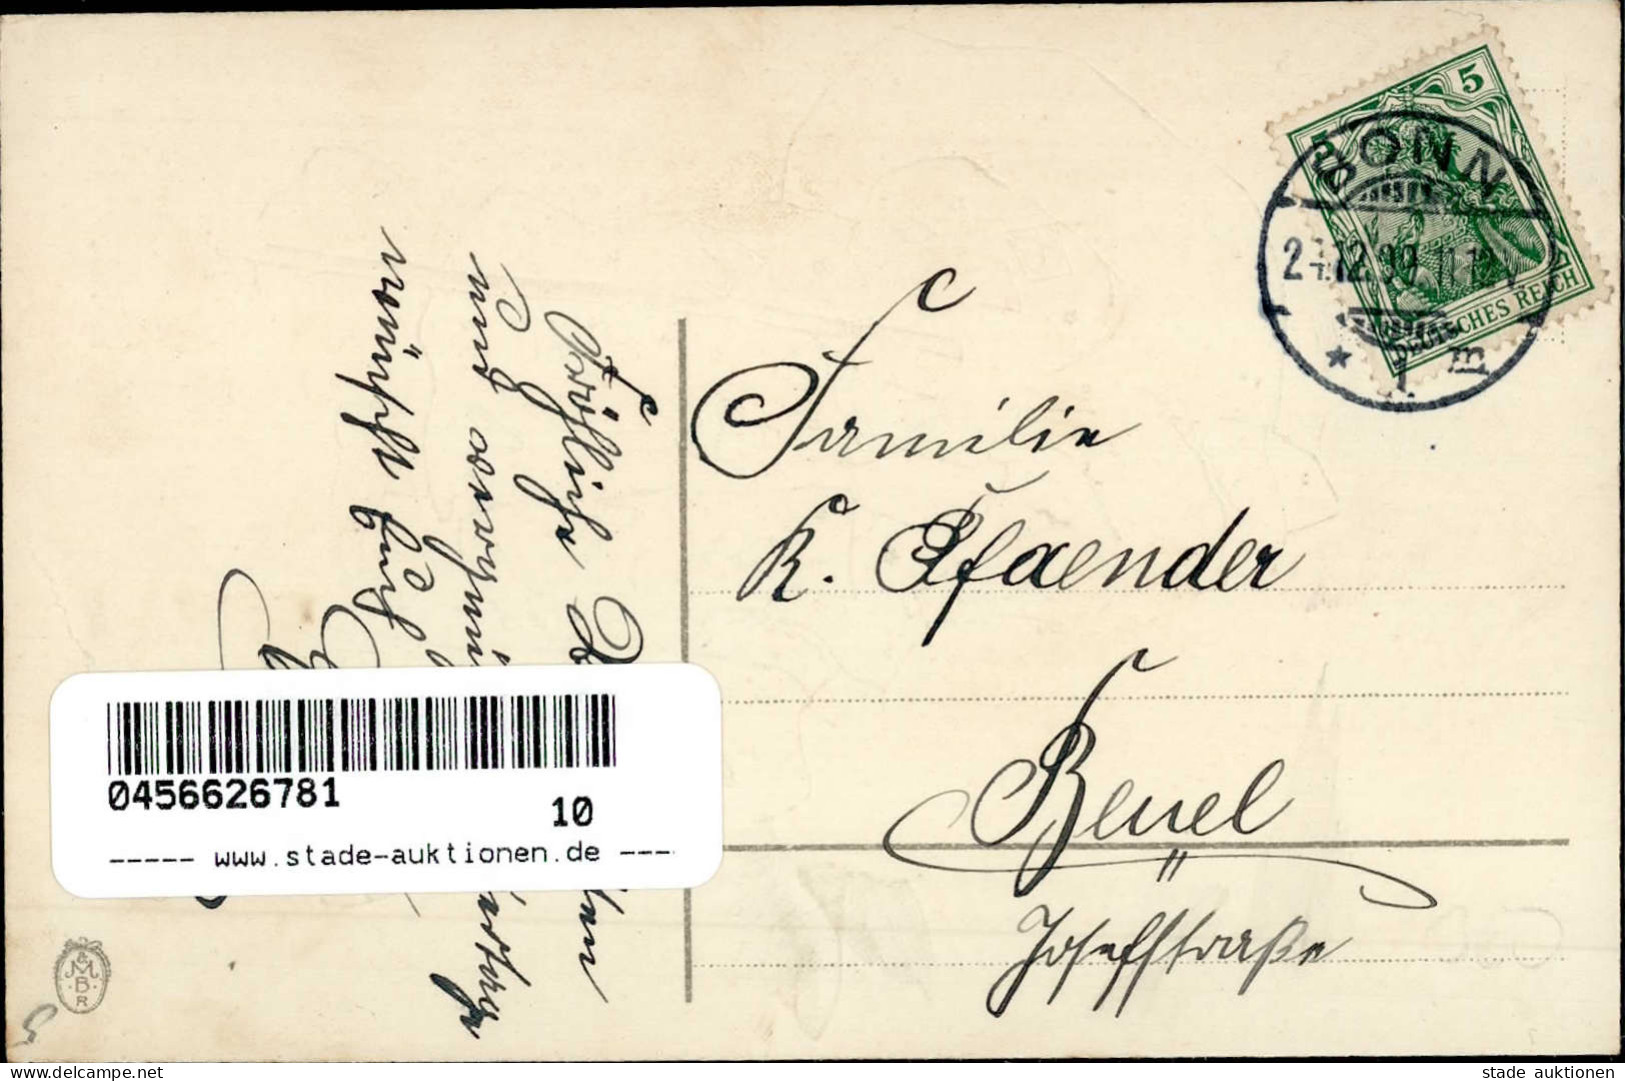 5
5
BONN
24.12.09. 11-12 V
DEUTSCHES REICH
* 1 m
Familie
K. Pfaender
Beuel
Josefstraße
Fröhliche
und
wünscht Euch
0456626781
10
----- www.stade-auktionen.de ----
M
& B
R
stade auktionen